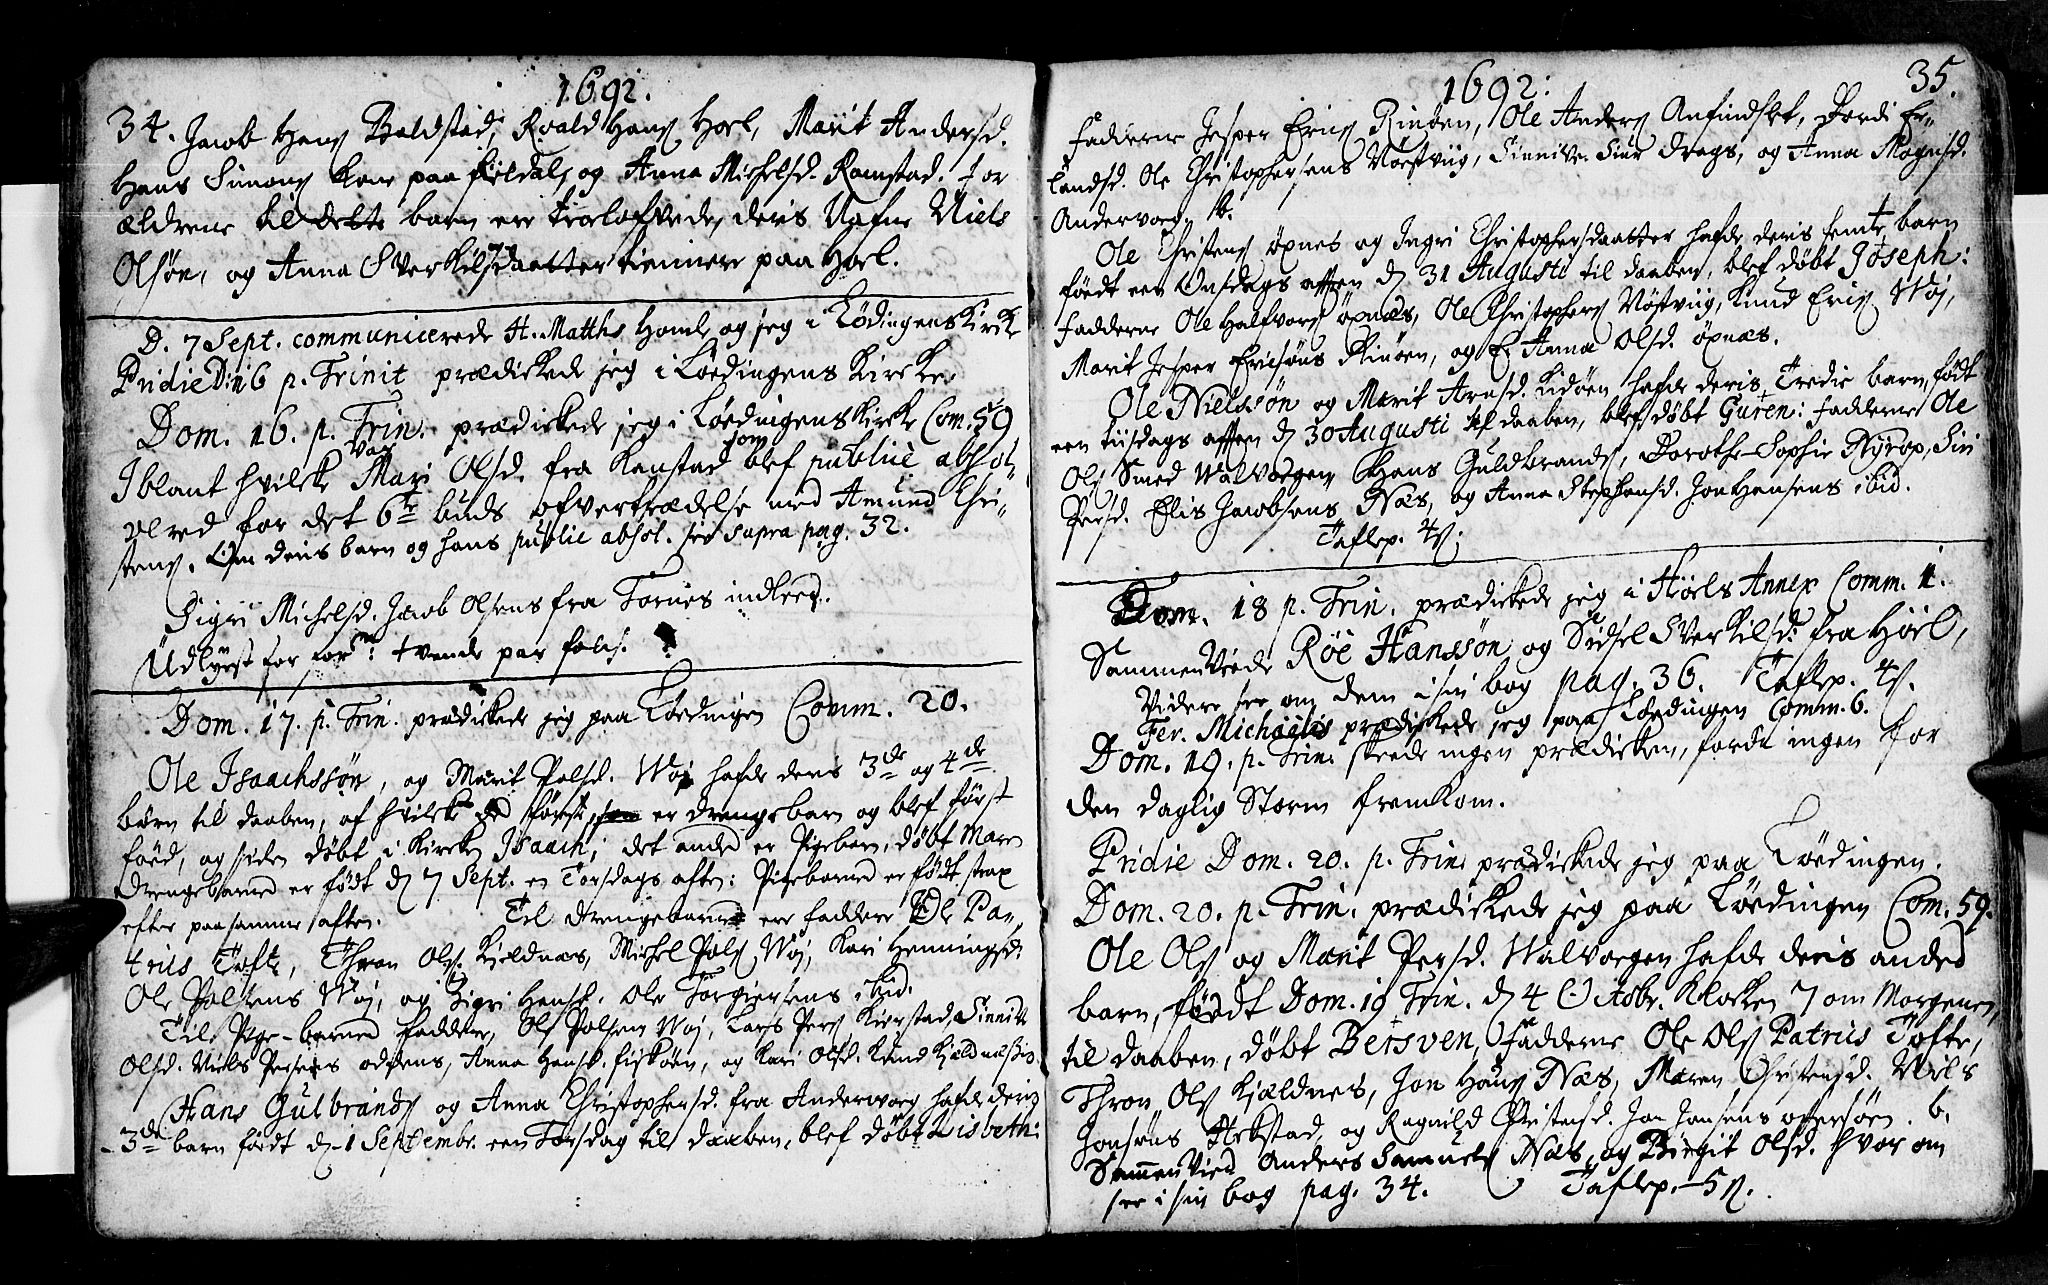 1692.
34. Jacob Hans Boldstad, Roald Hans Hoel, Marit Andersd.
Hans Simons kone paa Fieldal, og Anna Michelsd. Ramstad. For
ældrene til dette barn ere trolofvede, deris Nafne Niels
Olsøn, og Anna Sverkilsdaatter tiennere paa Hoel.
D. 7 Sept. communicerede H. Matths Homle og jeg i Lødingens Kircke
Pridie D. 16 p. Trinit prædickede jeg i Løedingens Kircke.
Dom. 16. p. Trin. prædickede jeg i Løedingens Kircke Com. 59
Iblant hvilcke var Mari Olsd. fra Kanstad som blef publicè absol-
vered for det 6te buds ofvertrædelse med Amund Chri-
stens. Om deris barn og hans public absol. see supra pag. 32.
Sigri Michelsd. Jacob Olsens fra Tornes indleed.
Udlyest for forn: tvende par folch.
Dom. 17. p. Trin. prædickede jeg paa Løedingen Comm. 20.
Ole Isaachssøn, og Marit Polsd. Woj hafde deres 3de og 4de
børn til daaben, af hvilcke det første er drengebarn og blef først
føed, og siden døbt i Kircken Isaach; det andet er Pigebarn, døbt Maren
Drengebarned er født d. 7 Sept. en Torsdags aften: Pigebarned er født strax
efter paa samme aften. Til drengebarnet ere faddere Ole Pa-
trics Tofte, Thron Ols. Kjeldnæs, Michel Pols. Woj, Kari Henningsd.
Ole Polsens Woj, og Sigri Hansd. Ole Torgiersens ibid.
Til Pige-barned Faddere, Ols Polsen Woj, Lars Pers Kierstad, Sinnive
Olsd. Niels Persens , Anna Hansd. Fiskøen, og Kari Olsd. Knud Kjeldnæs
Hans Gulbrands og Anna Christophersd. fra Andervaag hafde deris
3de barn føedt d. 1 Septembr. een Torsdag til daaben, blef døbt Lisbeth:
1692. 35.
Fadderne Jesper Erics Rinøen, Ole Anders Anfindslet, Dordi Er-
landsd. Ole Christophersens Nøestviig, Sinnive Siur Drags, og Anna Mognsd.
Andervoag. b.
Ole Christens Øxnes og Ingri Christophersdaatter hafde deris femte barn
føedt een Onsdags aften d. 31 Augusti til daaben, blef døbt Joseph:
Fadderne Ole Halfvors Øxnæs, Ole Christophers Nøstviig, Knud Erics Woj,
Marit Jesper Ericsøns Rinøen, og E. Anna Olsd. Øxnæs.
Ole Nielssøn og Marit Arnesd. Kidøen hafde deris Tredie barn, født
een tiisdags aften d. 30 Augusti til daaben, blef døbt Guren: Fadderne Ole
Ols Smed Walvogen, Hans Guldbrands, Dorothe-Sophie Nyrop, Siri
Persd. Elis Jacobsens Næs, og Anna Stephensd. Jon Hansens ibid.
Taflep. 4s.
Dom. 18 p. Trin. prædickede jeg i Hoels Annex Comm. 11.
Sammenviede Røe Hanssøn og Sidsel Sverkilsd: fra Hoel,
Videre see om dem i sin bog pag. 36. Taflep. 4s.
Fer. Michaëlis prædickede jeg paa Løedingen Comm. 6.
Dom. 19. p. Trin. skeede ingen prædicken, fordi ingen for
den daglig Storm fremkom.
Pridie Dom. 20. p. Trin. prædickede jeg paa Løedingen.
Dom. 20. p. Trin. prædickede jeg paa Løedingen Com. 59.
Ole Ols og Marit Persd. Walvogen hafde deris andet
barn, født Dom. 19 Trin. d. 4 Octobr. Klocken 7 om Morgenen,
til daaben, døbt Bersven, Fadderne Ole Ols Patrics Tofte,
Thron Ols Kjældnes, Jon Hans Næs, Maren Christensd. Niels
Jonsens Hekstad, og Ragnild Christensd. Jon Jonsens . b.
Sammenvied Anders Samuels Næs, og Birgit Olsd. hvor om
see i sin bog pag. 34. Taflep. 5s.